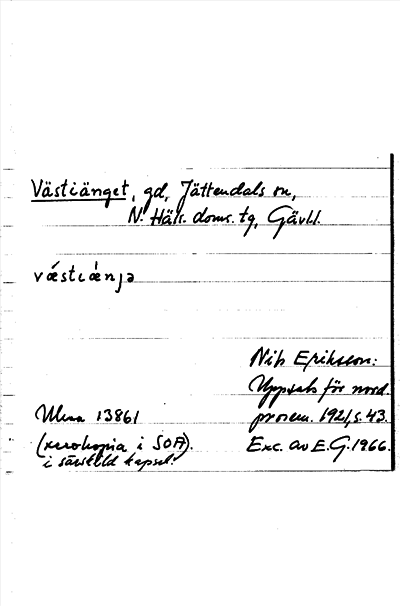 Västiänget, gd, Jättendals sn,
N. Häls. doms. tg, Gävll.
væ´stɩæ`nɟə
Nils Erikson:
Uppsats för nord.
prosem. 1921, s. 43.
Exc. av E.G. 1966.
Ulma 13861
(xerokopia i SOA).
i särskild kapsel.